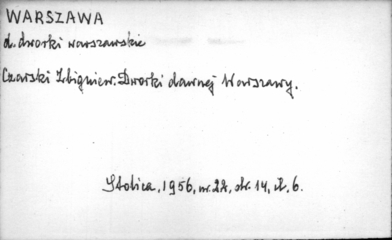 WARSZAWA
d. dworki warszawskie
Czarski Zbigniew: Dworki dawnej Warszawy.
Stolica, 1956, nr. 22, str. 14, il. 6.